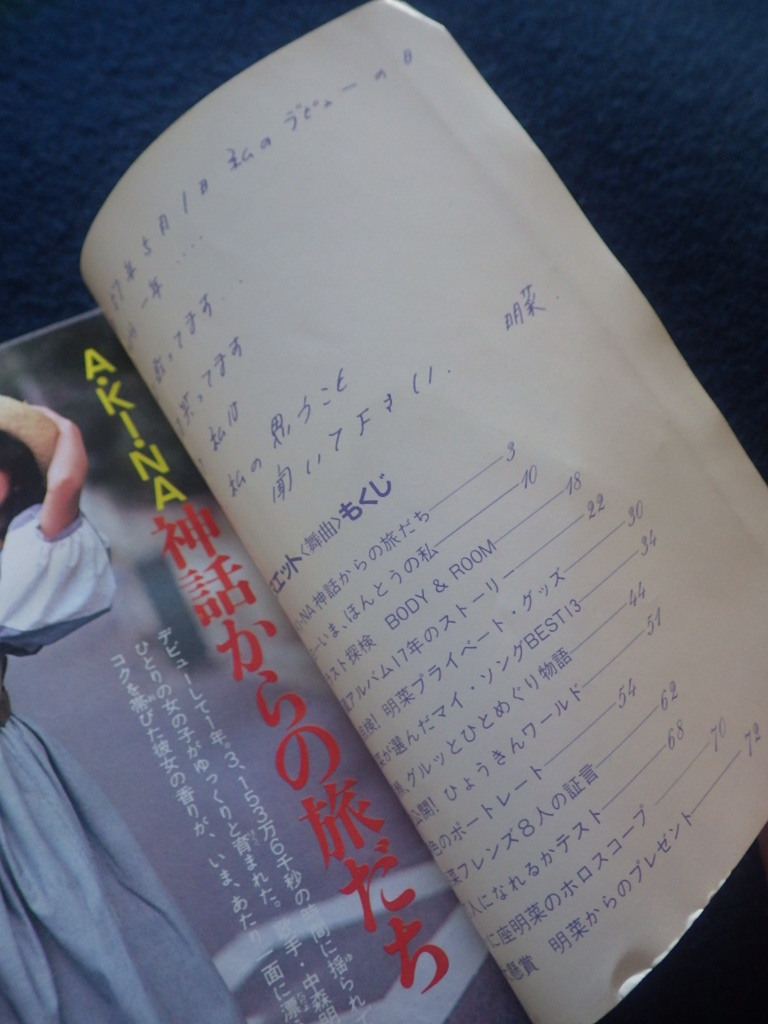 57年5月1日 私のデビューの日
一年....
歌ってます...
笑ってます
私は
私の思うこと
聞いて下さい.
明菜.
エット〈舞曲〉もくじ
I・NA神話からの旅だち 3
いま、ほんとうの私 10
スト探検 BODY & ROOM 18
アルバム17年のストーリー 22
検! 明菜プライベート・グッズ 30
が選んだマイ・ソングBEST13 34
グルッとひとめぐり物語 44
公開! ひょうきんワールド 51
色のポートレート 54
菜フレンズ8人の証言 62
人になれるかテスト 68
座明菜のホロスコープ 70
懸賞 明菜からのプレゼント 72
A・KI・NA神話からの旅だち
デビューして1年。3,153万6千秒の時間に揺られて
ひとりの女の子がゆっくりと育まれた。歌手・中森明
コクを帯びた彼女の香りが、いま、あたり一面に漂